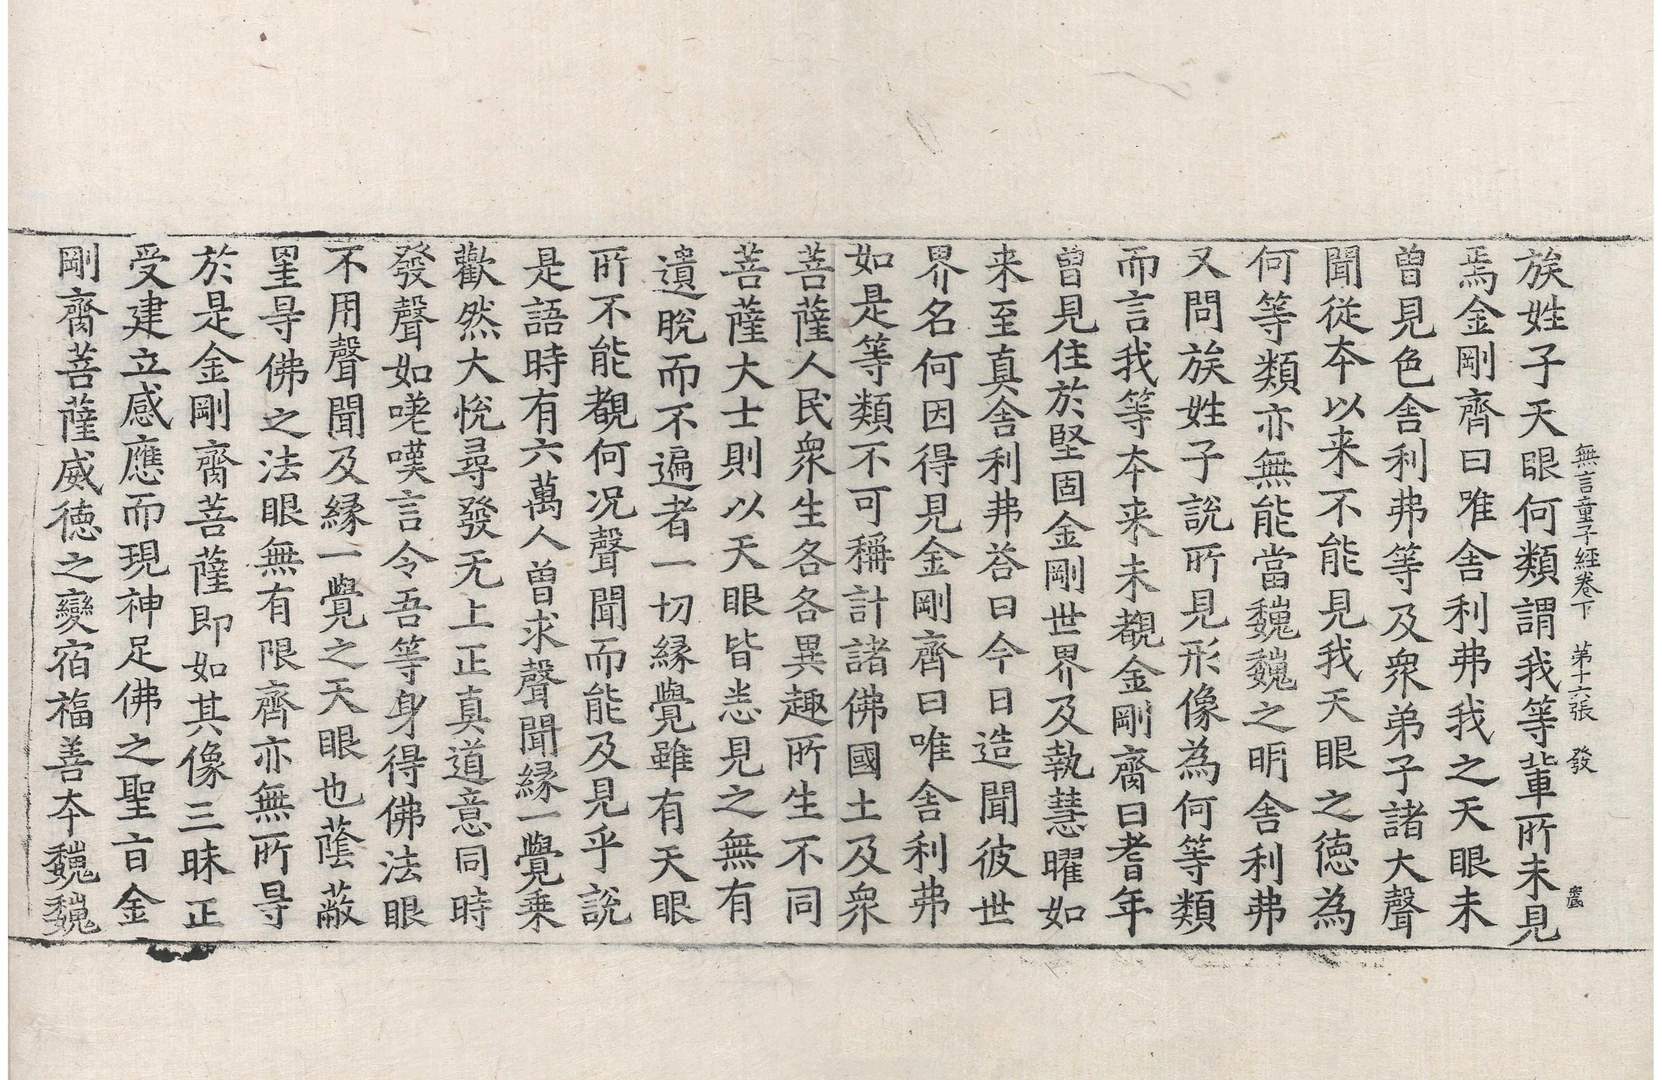 無言童子經卷下　第十六張　發
族姓子天眼何類謂我等輩所未見
焉金剛齊曰唯舍利弗我之天眼未
曽見色舍利弗等及眾弟子諸大聲
聞從夲以来不能見我天眼之徳為
何等類亦無能當巍巍之明舍利弗
又問族姓子說所見形像為何等類
而言我等夲来未覩金剛齊曰耆年
曽見住於堅固金剛世界及執慧曜如
来至真舍利弗荅曰今日造聞彼世
界名何因得見金剛齊曰唯舍利弗
如是等類不可稱計諸佛國土及眾
菩薩人民眾生各各異趣所生不同
菩薩大士則以天眼皆悉見之無有
遺脫而不遍者一切縁覺雖有天眼
所不能覩何况聲聞而能及見乎說
是語時有六萬人曽求聲聞縁一覺乗
歡然大悅尋發无上正真道意同時
發聲如嗟嘆言令吾等身得佛法眼
不用聲聞及縁一覺之天眼也蔭蔽
罣㝵佛之法眼無有限齊亦無所㝵
於是金剛齊菩薩即如其像三昧正
受建立感應而現神足佛之聖旨金
剛齊菩薩威徳之變宿福善夲巍巍